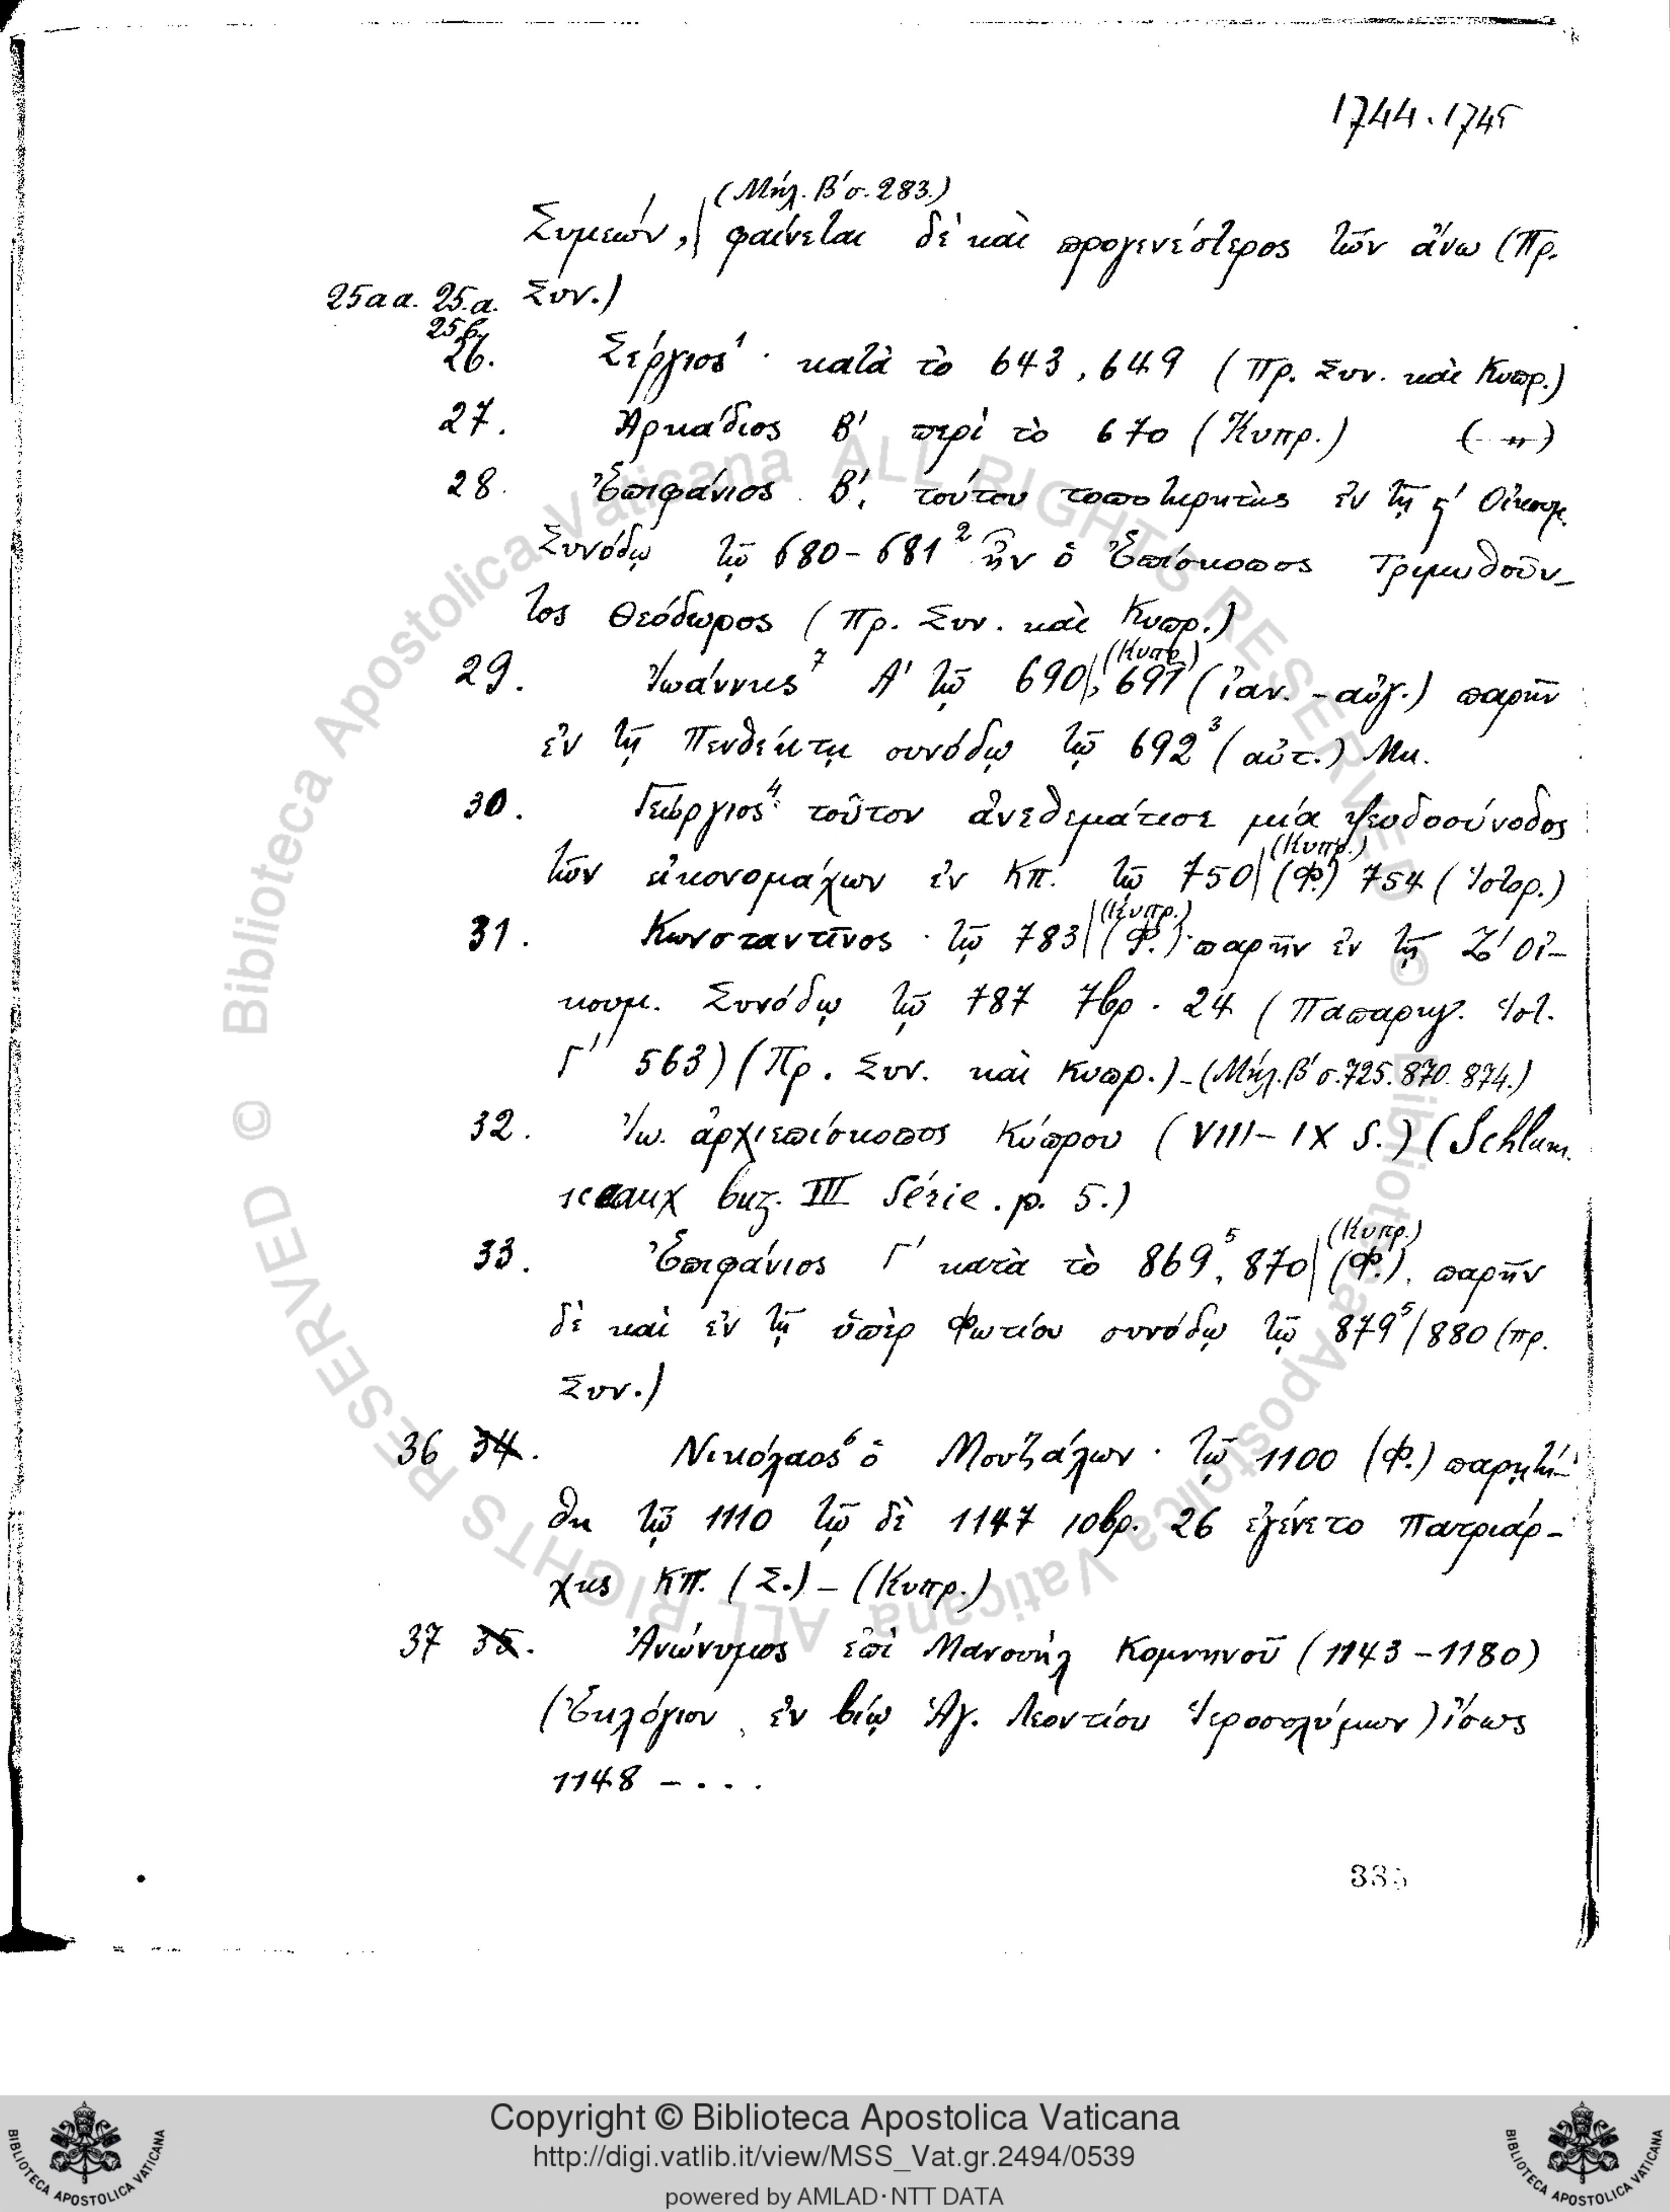 1744.1745
(Μήλ. Β' σ. 283.)
Συμεών, φαίνεται δὲ καὶ προγενέστερος τῶν ἄνω (Πρ.
25αα. 25.α. Συν.)
25β.
26. Σέργιος¹ · κατὰ τὸ 643, 649 (Πρ. Συν. καὶ Κυπρ.)
27. Ἀρκάδιος Β' περὶ τὸ 670 (Κυπρ.) ( „ )
28. Ἐπιφάνιος Β', τούτου τοποτηρητὴς ἐν τῇ ϛ' Οἰκουμ.
Συνόδῳ τῷ 680-681² ἦν ὁ Ἐπίσκοπος Τριμυθοῦν-
τος Θεόδωρος (Πρ. Συν. καὶ Κυπρ.)
(Κυπρ)
29. Ἰωάννης⁷ Α' τῷ 690, 691 (ἰαν. - αὐγ.) παρῆν
ἐν τῇ Πενθέκτῃ συνόδῳ τῷ 692³ (αὐτ.) Μη.
30. Γεώργιος⁴· τοῦτον ἀνεθεμάτισε μία ψευδοσύνοδος
(Κυπρ.)
τῶν εἰκονομάχων ἐν Κπ. τῷ 750 (Φ.) 754 (Ἱστορ.)
(Κυπρ.)
31. Κωνσταντῖνος · τῷ 783 (Φ.)· παρῆν ἐν τῇ Ζ' Οἰ-
κουμ. Συνόδῳ τῷ 787 7βρ. 24 (Παπαρηγ. Ἱστ.
Γ' 563) (Πρ. Συν. καὶ Κυπρ.) - (Μήλ. Β' σ. 725. 870. 874.)
32. Ἰω. ἀρχιεπίσκοπος Κύπρου (VIII-IX S.) (Schlum.
sceaux buz. III Série. p. 5.)
(Κυπρ.)
33. Ἐπιφάνιος Γ' κατὰ τὸ 869⁵, 870 (Φ.), παρῆν
δὲ καὶ ἐν τῇ ὑπὲρ Φωτίου συνόδῳ τῷ 879⁵/880 (πρ.
Συν.)
36 34. Νικόλαος⁶ ὁ Μουζάλων · τῷ 1100 (Φ.) παρῃτή-
θη τῷ 1110 τῷ δὲ 1147 10βρ. 26 ἐγένετο Πατριάρ-
χης ΚΠ. (Σ.) - (Κυπρ.)
37 35. Ἀνώνυμος ἐπὶ Μανουὴλ Κομνηνοῦ (1143-1180)
(Ἐκλόγιον, ἐν βίῳ Ἁγ. Λεοντίου Ἱεροσολύμων) ἴσως
1148 - . . .
335
© Biblioteca Apostolica Vaticana ALL RIGHTS RESERVED © Biblioteca Apostolica Vaticana ALL RIGHTS RESERVED
BIBLIOTECA APOSTOLICA VATICANA
Copyright © Biblioteca Apostolica Vaticana
http://digi.vatlib.it/view/MSS_Vat.gr.2494/0539
powered by AMLAD·NTT DATA
BIBLIOTECA APOSTOLICA VATICANA